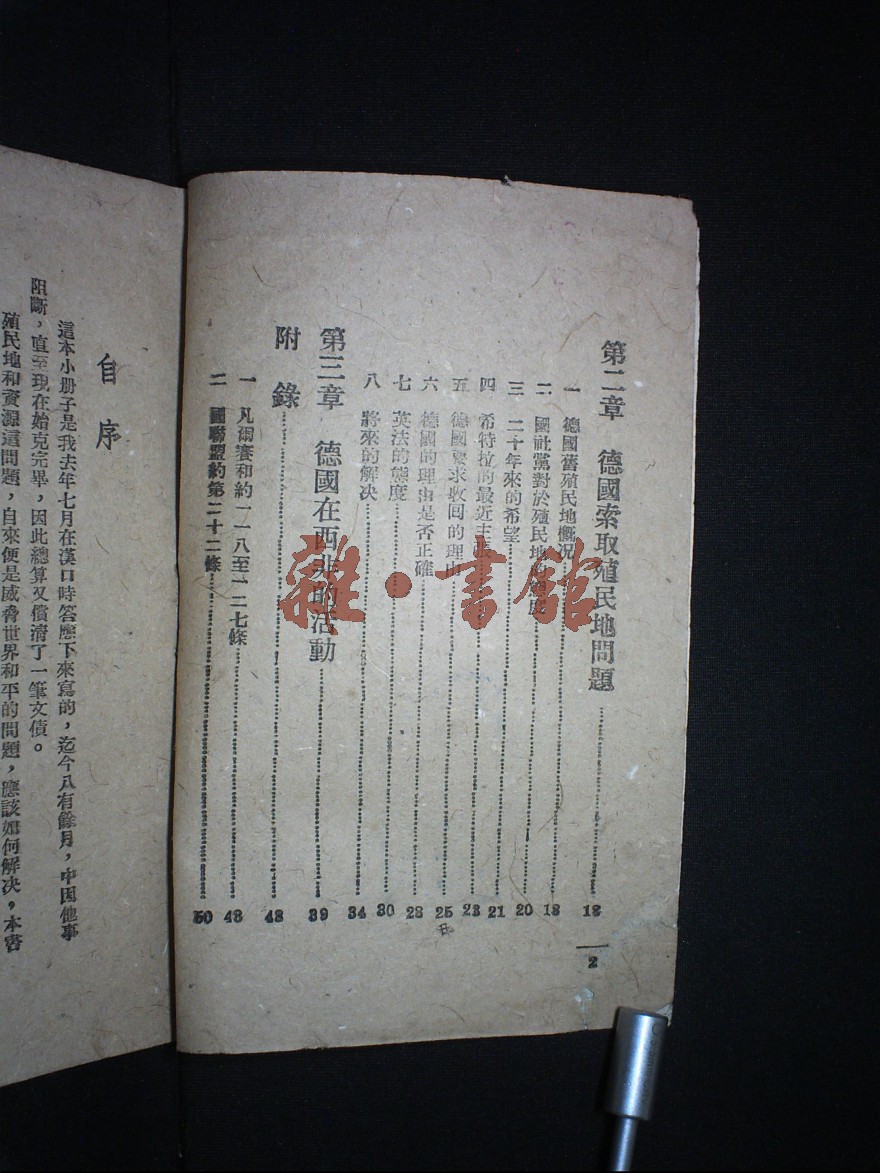 第二章 德國索取殖民地問題 18
一 德國舊殖民地概況 18
二 國社黨對於殖民地的態度 20
三 二十年來的希望 21
四 希特拉的最近主張 23
五 德國要求收回的理由 25
六 德國的理由是否正確 28
七 英法的態度 30
八 將來的解決 34
第三章 德國在西非的活動 39
附錄 48
一 凡爾賽和約一一八至一二七條 48
二 國聯盟約第二十二條 50
2
自序
這本小册子是我去年七月在漢口時答應下來寫的,迄今八有餘月,中因他事
阻斷,直至現在始克完畢,因此總算又償清了一筆文債。
殖民地和資源這問題,自來便是威脅世界和平的問題,應該如何解决,本書
雜·書館